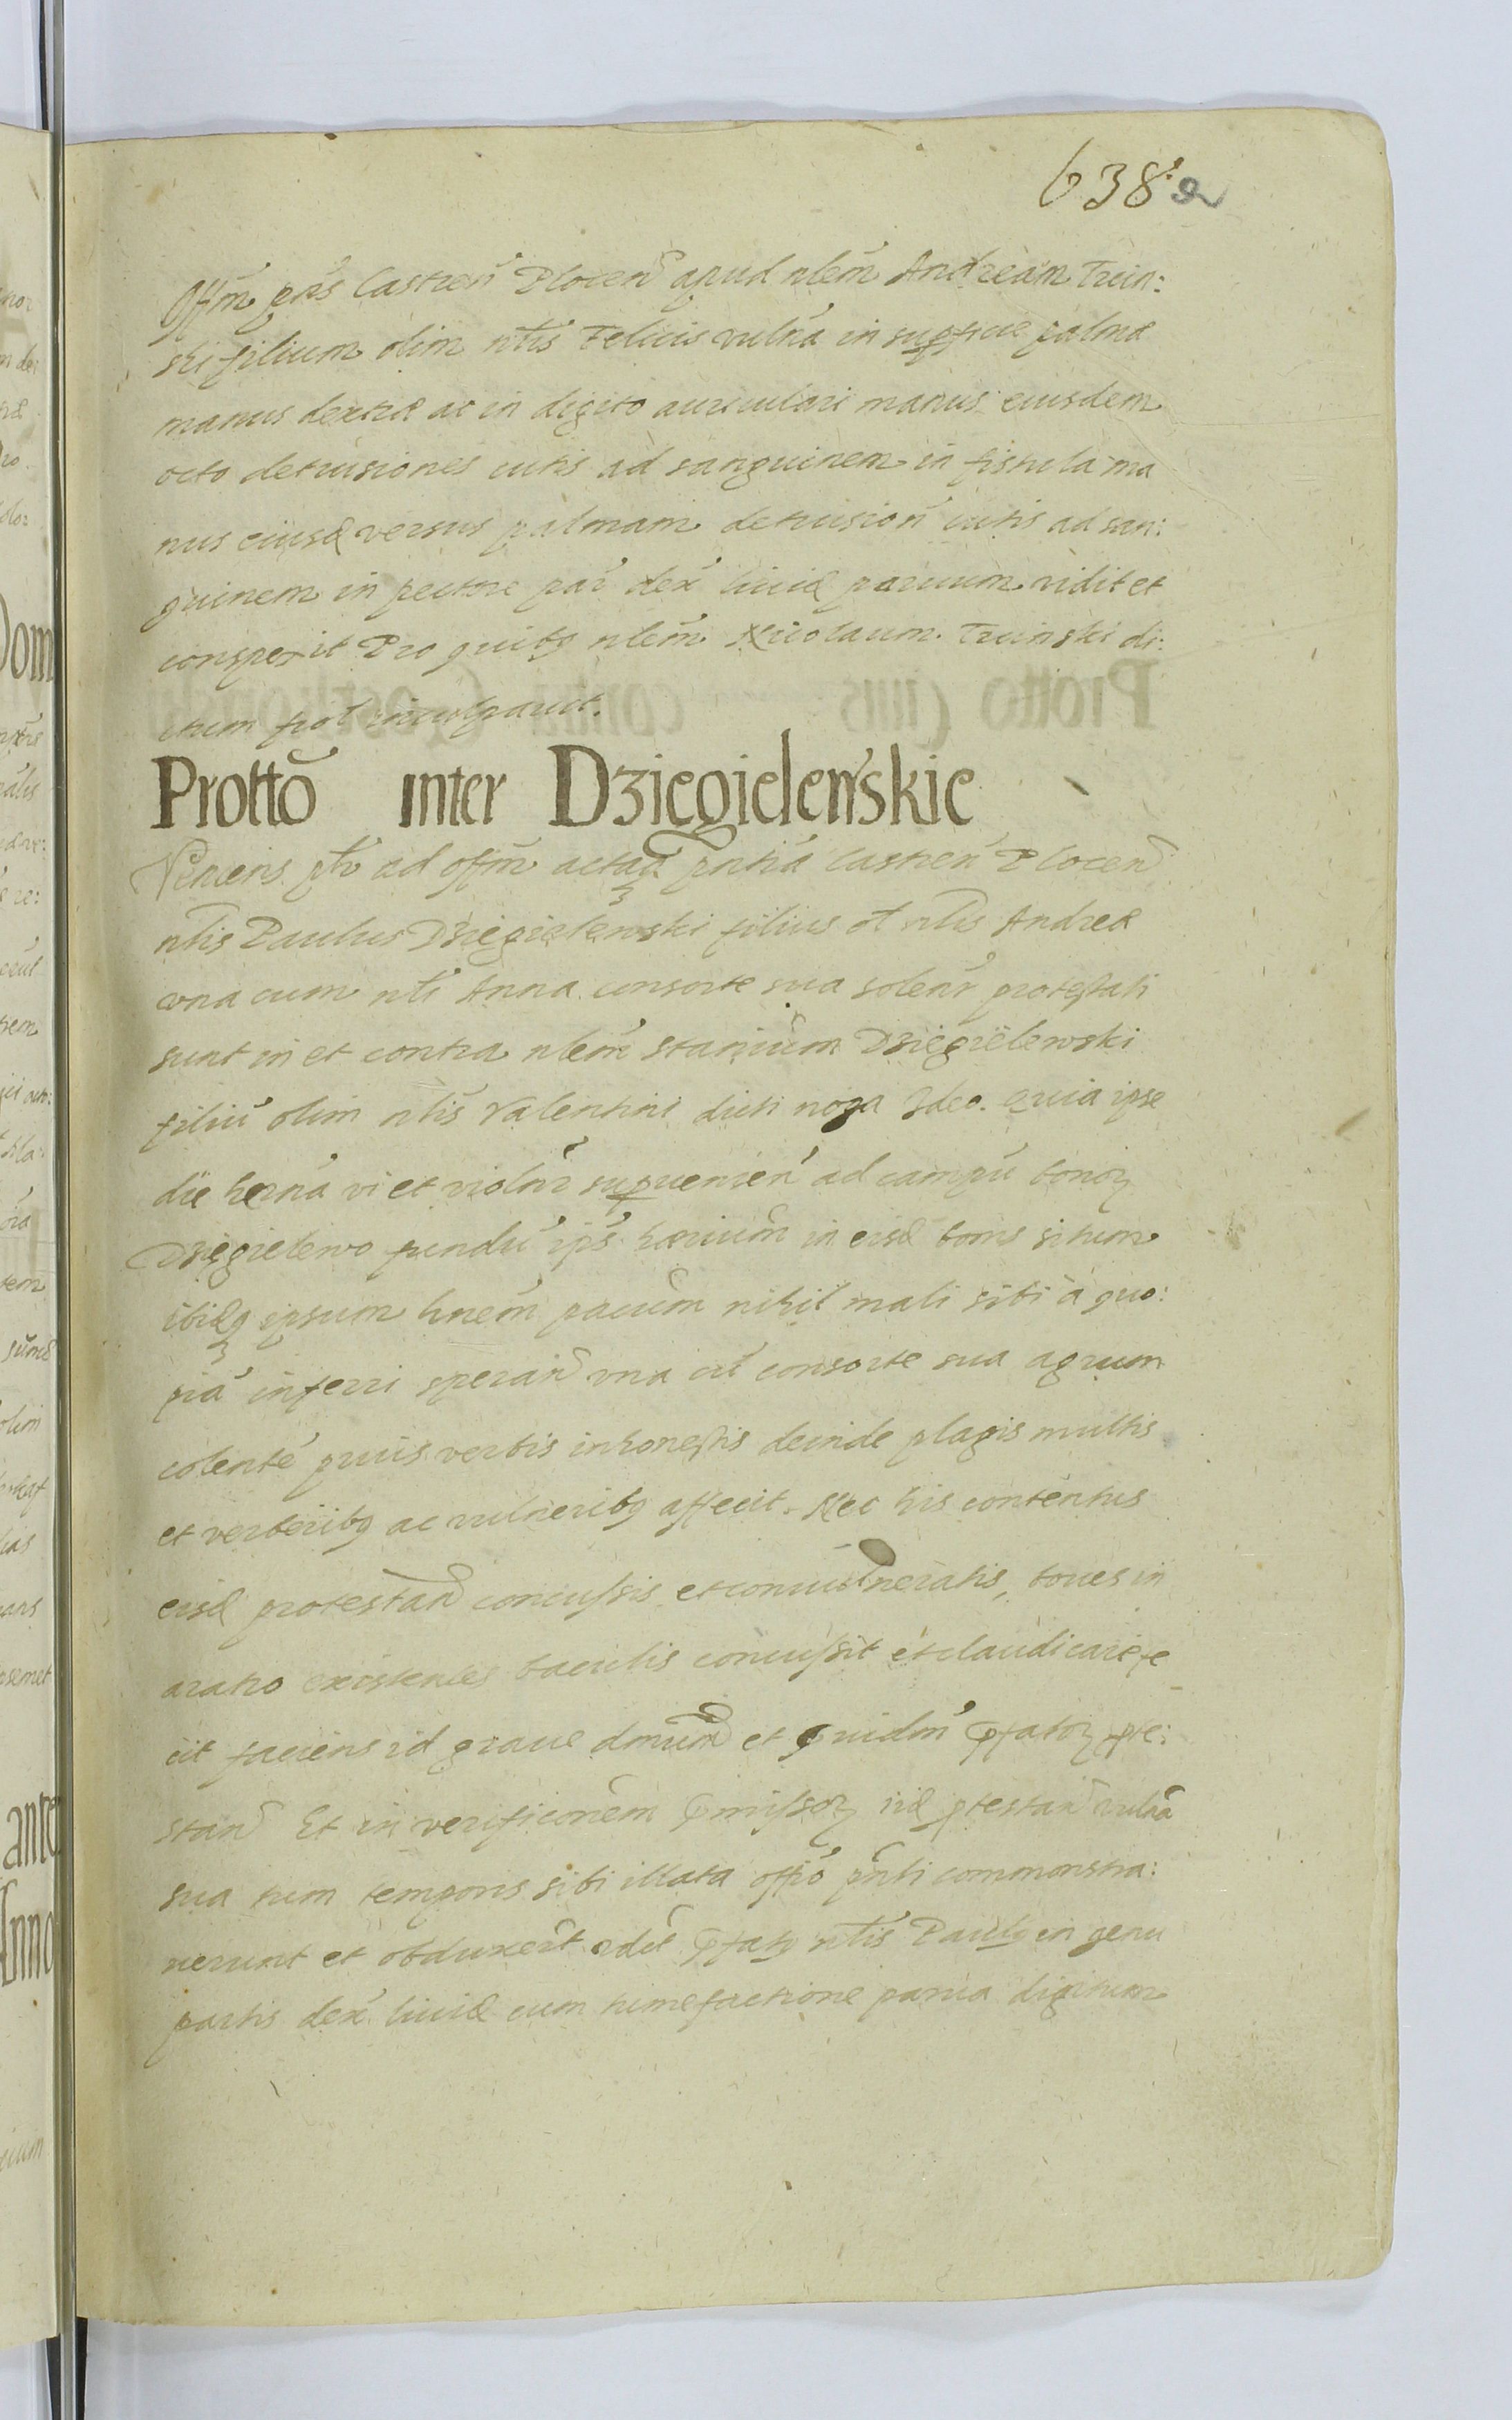 638 a
Offm prs Castren Plocen apud nlem Andream Trzin:
ski filium olim nlis Felicis vulna in supficie palmæ
manus dextræ ac in digito auriculari manus eiusdem
octo detrusiones cutis ad sanguinem in fistula ma
nus eiusd versus palmam detrusion cutis ad san:
guinem in pectore par dex livid parvum vidit et
conspexit Pro quibq nlem Nicolaum Trzinski di:
ctum inculpavit.
Protto inter Dziegielewskie
Veniens ptr ad offm actaq pntia Castren Plocen
nlis Paulus Dziegielewski filius ol nlis Andreæ
una cum nli Anna consorte sua solenr protestati
sunt in et contra nlem Stanium Dziegielewski
filiu olim nlis Valentini dicti noga Ideo quia ipse
die herna vi et violnr supvenien ad campu bonoz
Dziegielewo fundu ips in eisd bonis situm
ibidq ipsum hnem pacum nihil mali sibi a quo:
pia inferri speran una cu consorte sua agrum
colente prius verbis inhonestis deinde plagis multis
et verberibq ac vulneribq affecit. Nec his contentus
eisd protestan concussis et convulneratis, boves in
aratro existentes baculis concussit et claudicare fe
cit faciens id grave dmnum et pfatoz pte:
stan Et in verificonem pmissoz iid ptestan vulna
sua tum temporis sibi illata offio pnti commonstra:
verunt et obduxert pfatq nlis Paulq in genu
partis dex livid cum tumefactione parva digitum